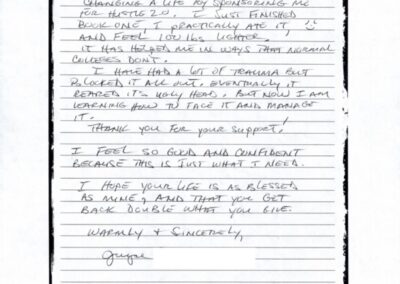 CHANGING A LIFE BY SPONSORING ME
FOR HUSTLE 2.0. I JUST FINISHED
BOOK ONE I PRACTICALLY ATE IT
AND FEEL 100 lbs LIGHTER.
IT HAS HELPED ME IN WAYS THAT NORMAL
COLLEGES DON'T.
I HAVE HAD A LOT OF TRAUMA BUT
BLOCKED IT ALL OUT. EVENTUALLY IT
REARED IT'S UGLY HEAD, BUT NOW I AM
LEARNING HOW TO FACE IT AND MANAGE
IT.
THANK YOU FOR YOUR SUPPORT!
I FEEL SO GOOD AND CONFIDENT
BECAUSE THIS IS JUST WHAT I NEED.
I HOPE YOUR LIFE IS AS BLESSED
AS MINE, AND THAT YOU GET
BACK DOUBLE WHAT YOU GIVE.
WARMLY & SINCERELY,